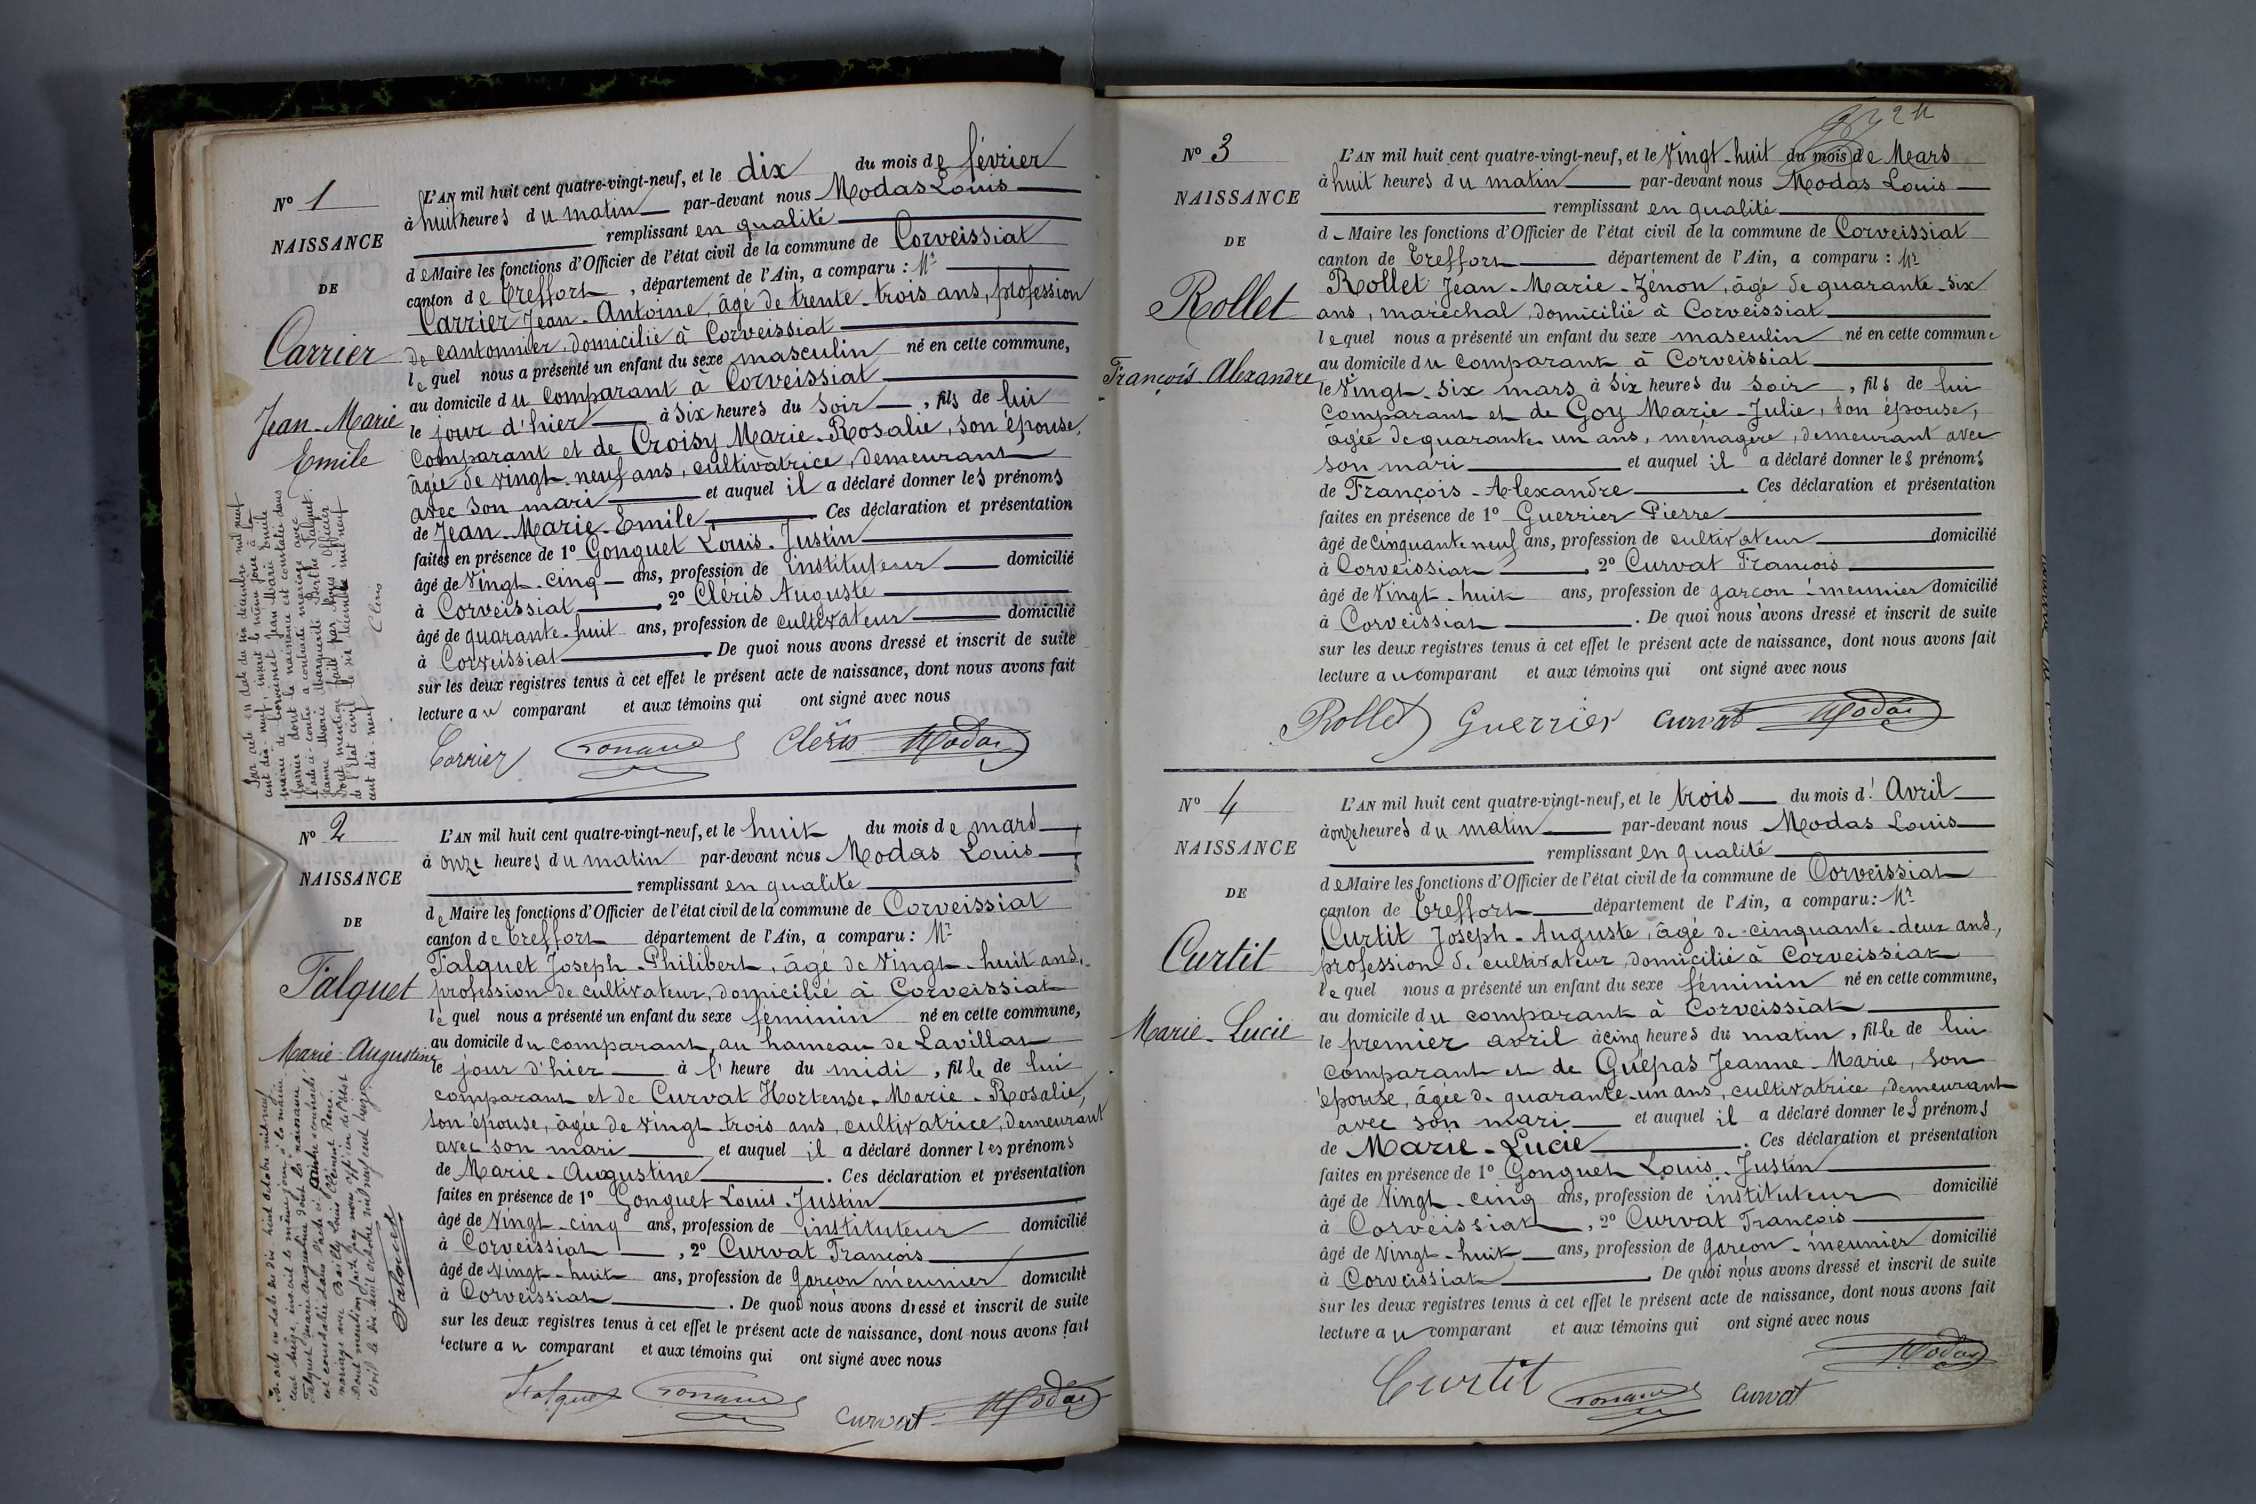 N° 1
NAISSANCE
DE
Carrier
Jean-Marie
Emile
L'AN mil huit cent quatre-vingt-neuf, et le dix du mois de février
à huit heures du matin par-devant nous Modas Louis
remplissant en qualité
de Maire les fonctions d'Officier de l'état civil de la commune de Corveissiat
canton de Treffort, département de l'Ain, a comparu : Mr
Carrier Jean-Antoine, âgé de trente-trois ans, profession
de cantonnier, domicilié à Corveissiat
lequel nous a présenté un enfant du sexe masculin né en cette commune,
au domicile du comparant à Corveissiat
le jour d'hier à six heures du soir, fils de lui
comparant et de Croisy Marie-Rosalie, son épouse,
âgée de vingt-neuf ans, cultivatrice, demeurant
avec son mari et auquel il a déclaré donner les prénoms
de Jean-Marie-Emile. Ces déclaration et présentation
faites en présence de 1° Gonguet Louis-Justin
âgé de vingt-cinq ans, profession de instituteur domicilié
à Corveissiat, 2° Cléris Auguste
âgé de quarante-huit ans, profession de cultivateur domicilié
à Corveissiat. De quoi nous avons dressé et inscrit de suite
sur les deux registres tenus à cet effet le présent acte de naissance, dont nous avons fait
lecture au comparant et aux témoins qui ont signé avec nous
Carrier Cléris Modas
Par acte en date du six décembre mil neuf
cent dix-neuf, inscrit le même jour à la
mairie de Jean Marie Emile
Carrier dont la naissance est constatée dans
l'acte ci-contre a contracté mariage avec
Jeanne Marie Marguerite Berthe Falquet.
Dont mention faite par Nous, Officier
de l'Etat civil le six décembre mil neuf
cent dix-neuf Cléris
N° 2
NAISSANCE
DE
Falquet
Marie-Augustine
L'AN mil huit cent quatre-vingt-neuf, et le huit du mois de mars
à onze heures du matin par-devant nous Modas Louis
remplissant en qualité
de Maire les fonctions d'Officier de l'état civil de la commune de Corveissiat
canton de Treffort département de l'Ain, a comparu : Mr
Falquet Joseph-Philibert, âgé de vingt-huit ans,
profession de cultivateur, domicilié à Corveissiat
lequel nous a présenté un enfant du sexe féminin né en cette commune,
au domicile du comparant, au hameau de Lavillat
le jour d'hier à l'heure du midi, fille de lui
comparant et de Curvat Hortense-Marie-Rosalie,
son épouse, âgée de vingt-trois ans, cultivatrice, demeurant
avec son mari et auquel il a déclaré donner les prénoms
de Marie-Augustine. Ces déclaration et présentation
faites en présence de 1° Gonguet Louis-Justin
âgé de vingt-cinq ans, profession de instituteur domicilié
à Corveissiat, 2° Curvat François
âgé de vingt-huit ans, profession de garçon meunier domicilié
à Corveissiat. De quoi nous avons dressé et inscrit de suite
sur les deux registres tenus à cet effet le présent acte de naissance, dont nous avons fait
lecture au comparant et aux témoins qui ont signé avec nous
Falquet Curvat Modas
Par acte en date du dix huit octobre mil neuf
cent treize, inscrit le même jour à la mairie
Falquet Marie Augustine dont la naissance
est constatée dans l'acte ci contre a contracté
mariage avec Bailly Louis Clément René.
Dont mention faite par nous officier de l'état
civil le dix huit octobre mil neuf cent treize.
Falquet
N° 3
NAISSANCE
DE
Rollet
François-Alexandre
L'AN mil huit cent quatre-vingt-neuf, et le vingt-huit du mois de Mars
à huit heures du matin par-devant nous Modas Louis
remplissant en qualité
d Maire les fonctions d'Officier de l'état civil de la commune de Corveissiat
canton de Treffort département de l'Ain, a comparu : Mr
Rollet Jean-Marie-Zénon, âgé de quarante-six
ans, maréchal, domicilié à Corveissiat
lequel nous a présenté un enfant du sexe masculin né en cette commune
au domicile du comparant à Corveissiat
le vingt-six mars à six heures du soir, fils de lui
comparant et de Goy Marie-Julie, son épouse,
âgée de quarante un ans, ménagère, demeurant avec
son mari et auquel il a déclaré donner les prénoms
de François-Alexandre. Ces déclaration et présentation
faites en présence de 1° Guerrier Pierre
âgé de cinquante neuf ans, profession de cultivateur domicilié
à Corveissiat, 2° Curvat François
âgé de vingt-huit ans, profession de garçon-meunier domicilié
à Corveissiat. De quoi nous avons dressé et inscrit de suite
sur les deux registres tenus à cet effet le présent acte de naissance, dont nous avons fait
lecture au comparant et aux témoins qui ont signé avec nous
Rollet Guerrier Curvat Modas
N° 4
NAISSANCE
DE
Curtit
Marie-Lucie
L'AN mil huit cent quatre-vingt-neuf, et le trois du mois d'Avril
à onze heures du matin par-devant nous Modas Louis
remplissant en qualité
de Maire les fonctions d'Officier de l'état civil de la commune de Corveissiat
canton de Treffort département de l'Ain, a comparu : Mr
Curtit Joseph-Auguste, âgé de cinquante-deux ans,
profession de cultivateur, domicilié à Corveissiat
lequel nous a présenté un enfant du sexe féminin né en cette commune,
au domicile du comparant à Corveissiat
le premier avril à cinq heures du matin, fille de lui
comparant et de Guépas Jeanne-Marie, son
épouse, âgée de quarante-un ans, cultivatrice, demeurant
avec son mari et auquel il a déclaré donner les prénoms
de Marie-Lucie. Ces déclaration et présentation
faites en présence de 1° Gonguet Louis-Justin
âgé de vingt-cinq ans, profession de instituteur domicilié
à Corveissiat, 2° Curvat François
âgé de vingt-huit ans, profession de garçon-meunier domicilié
à Corveissiat. De quoi nous avons dressé et inscrit de suite
sur les deux registres tenus à cet effet le présent acte de naissance, dont nous avons fait
lecture au comparant et aux témoins qui ont signé avec nous
Curtit Curvat Modas